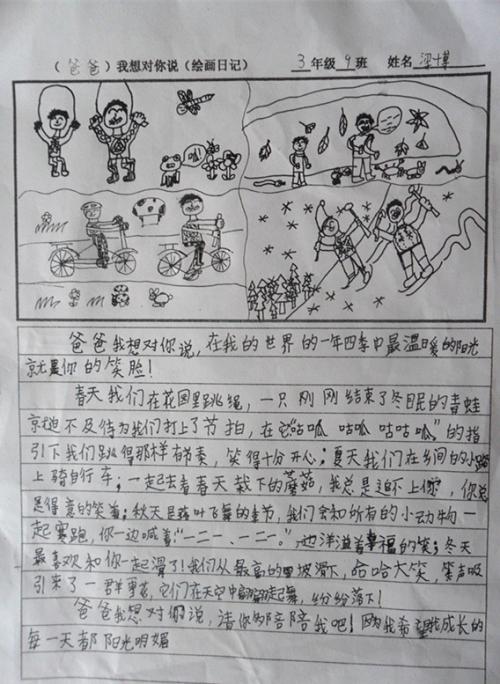 （爸爸）我想对你说（绘画日记） 3年级9班 姓名梁博
呱呱
爸爸我想对你说，在我的世界的一年四季中最温暖的阳光
就是你的笑脸！
春天我们在花园里跳绳，一只刚刚结束了冬眠的青蛙
迫不及待为我们打上了节拍，在它"咕呱 咕呱 咕咕呱"的指
引下我们跳得那样有节奏，笑得十分开心；夏天我们在乡间的小路
上骑自行车；一起去看春天栽下的蘑菇，我总是追不上你，你总
是得意的笑着；秋天是落叶飞舞的季节，我们会和所有的小动物一
起赛跑，你一边喊着"一二一、一二一。"，边洋溢着幸福的笑；冬天
最喜欢和你一起滑了！我们从最高的坡滑下，哈哈大笑，笑声吸
引来了一群雪花，它们在天空中翩翩起舞，纷纷落下！
爸爸我想对你说，请你陪陪我吧！因为我希望我成长的
每一天都阳光明媚